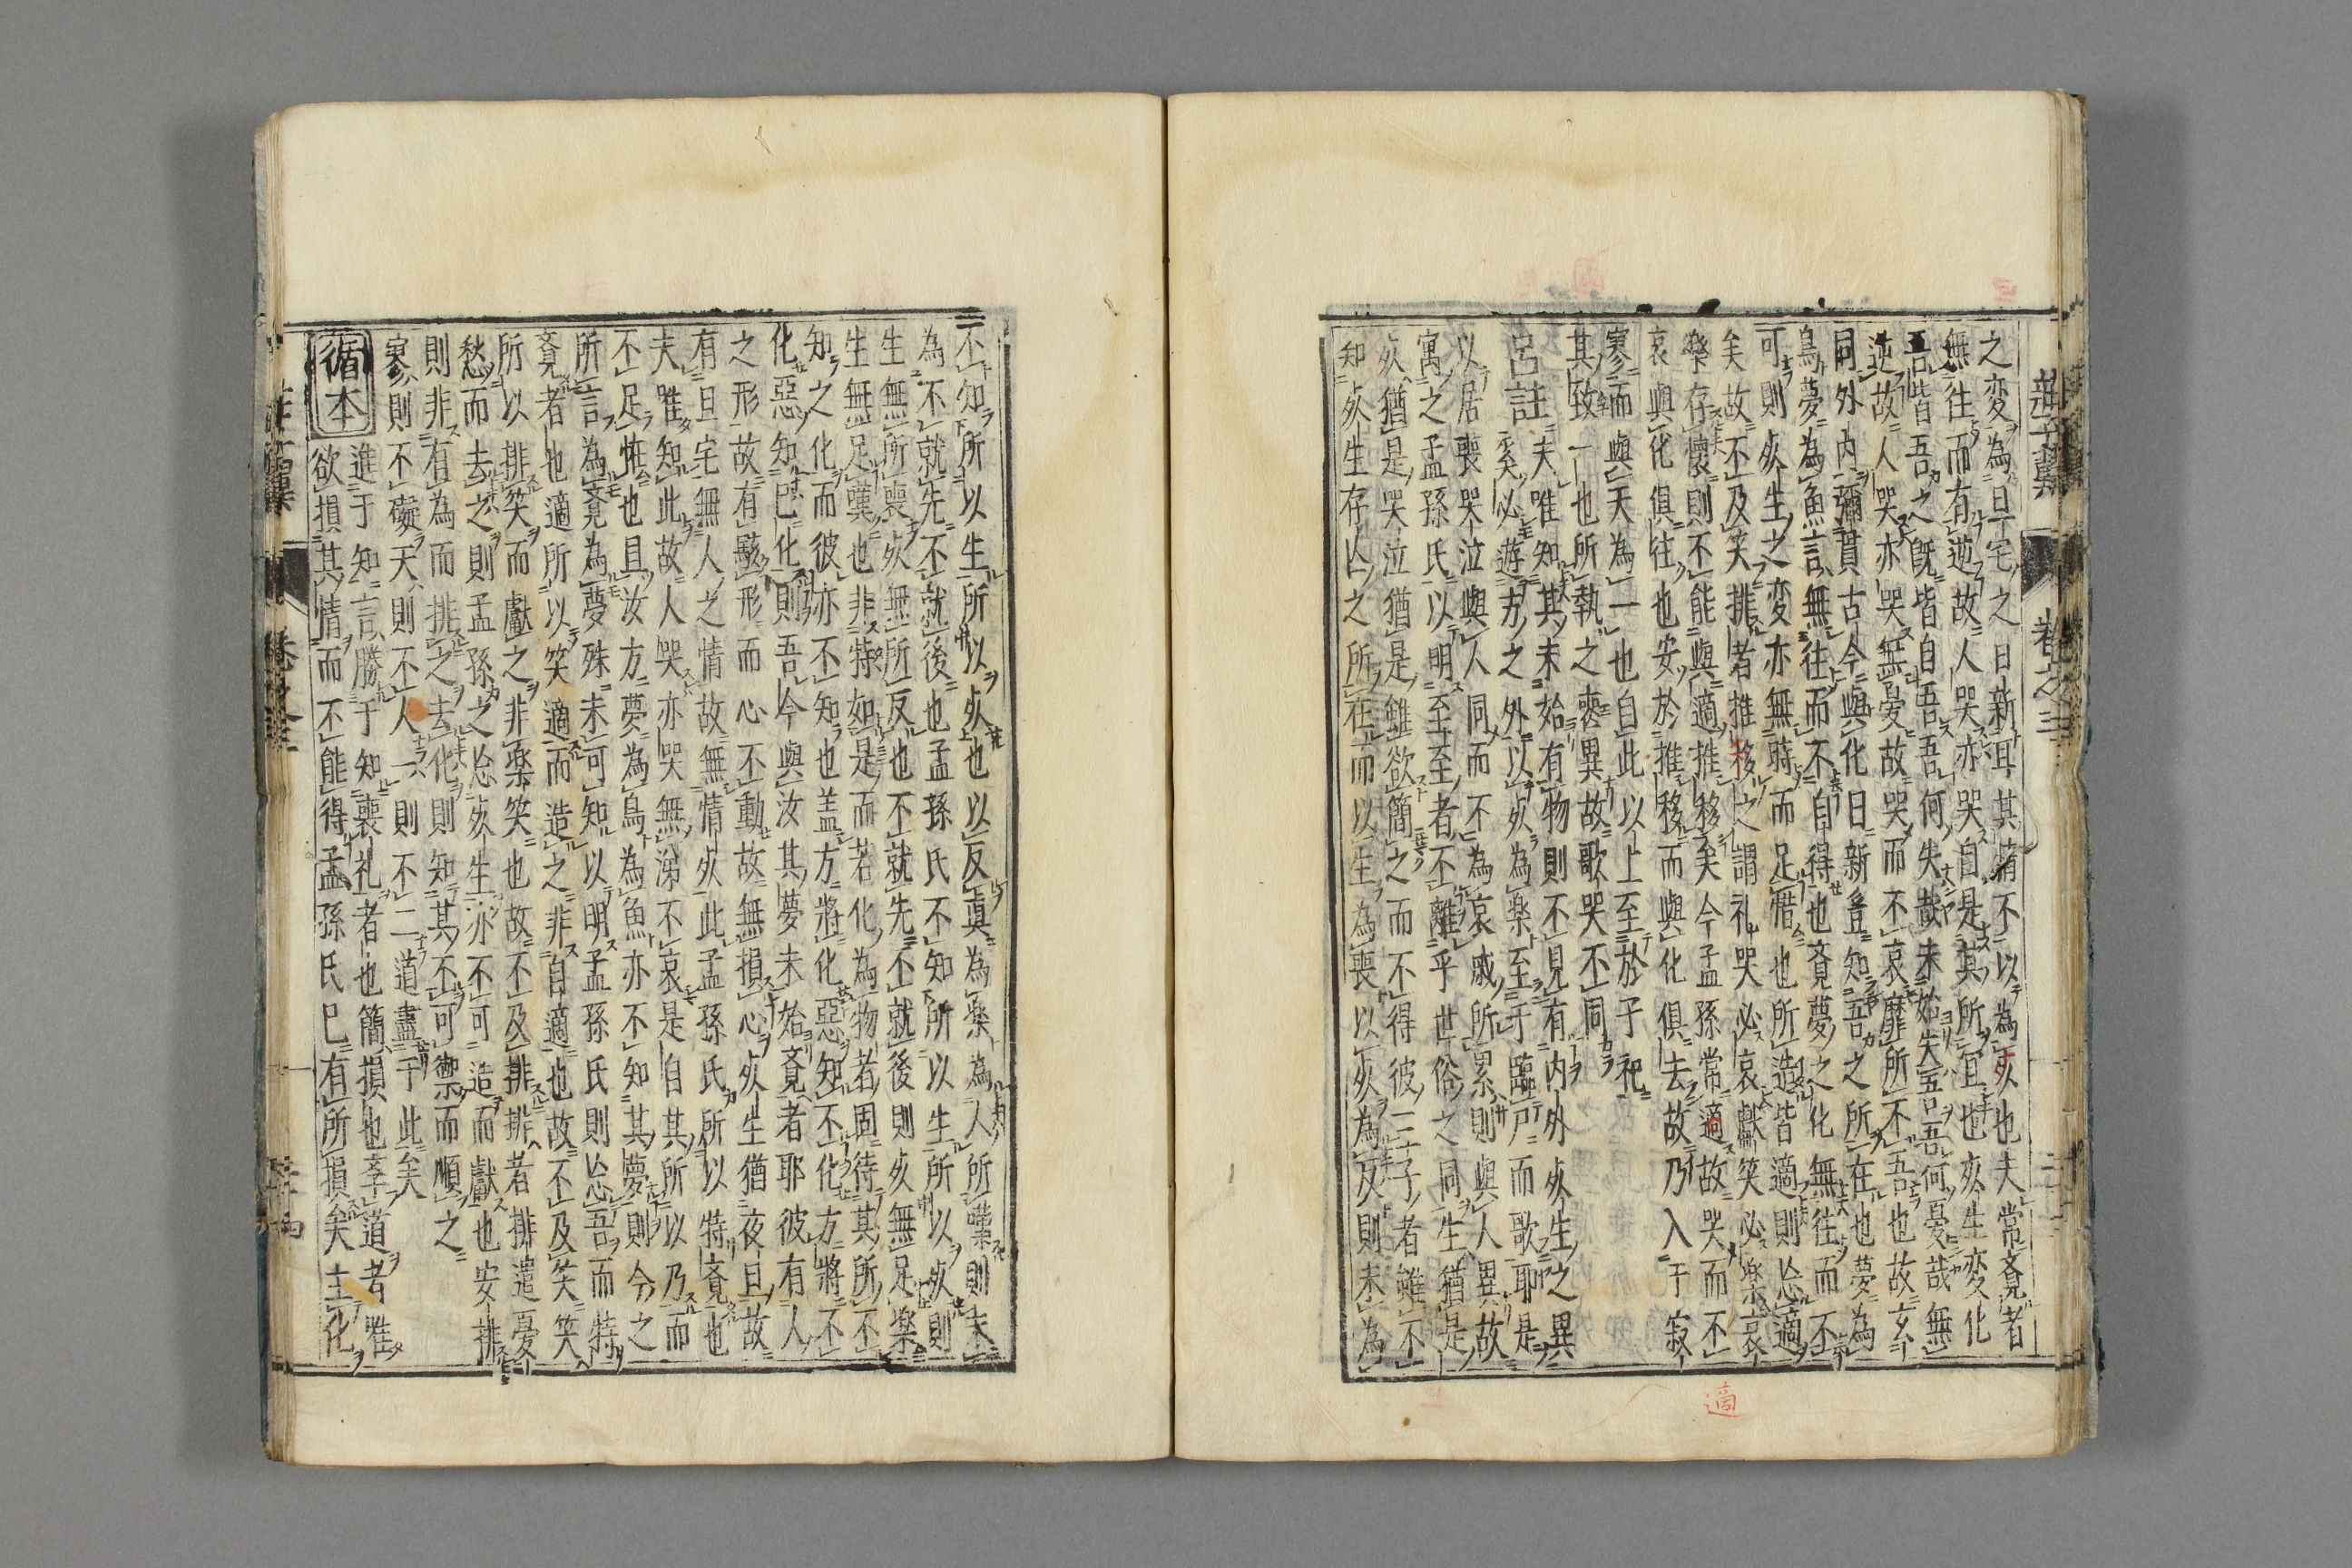 莊子翼 卷之三
之変為旦宅之日新耳其情不以為死也夫常覺者
無往而有逆故人哭亦哭自是其所宜也死生変化
吾皆吾之既皆自吾吾何失哉未始失吾吾何憂哉無
逆故人哭亦哭無憂故哭而不哀靡所不吾也故玄
同外内彌貫古今與化日新豈知吾之所在也夢為
鳥夢為魚言無往而不自得也覺夢之化無往而不
可則死生之変亦無時而足惜也所造皆適則忘適
矣故不及笑排者推移之謂礼哭必哀獻笑必楽哀
楽存懷則不能與適推移矣今孟孫常適故哭而不
哀與化俱往也安於推移而與化俱去故乃入于寂
寥而與天為一也自此以上至於子祀
其致一也所執之喪異故歌哭不同
呂註 夫唯知其未始有物則不見有内外死生之異
矣必遊方之外以死為楽至于臨尸而歌耶是
以居喪哭泣與人同而不為哀戚所累則與人異故
寓之孟孫氏以明至至者不離乎世俗之同生猶是
死猶是哭泣猶是雖欲簡之而不得彼三子者雖不
知死生存亡之所在而以生為喪以死為反則未為
不知所以生所以死也以反真為楽為人所嘆則未
為不就先不就後也孟孫氏不知所以生所以死則
生無所喪死無所反也不就先不就後則死無足楽
生無足嘆也非特如是而若化為物者固待其所不
知之化而彼亦不知也盖方將化惡知不化方將不
化惡知已化則吾今與汝其夢未始覺者耶彼有人
之形故有駭形而心不動故無損心死生猶夜旦故
有旦宅無人之情故無情死此孟孫氏所以特覺也
夫唯知此故人哭亦哭無涕不哀是自其所以乃而
不足恠也且汝方夢為鳥為魚亦不知其夢則今之
所言為覺為夢殊未可知以明孟孫氏則忘吾而特
覺者也適所以笑適而造之非自適也故不及笑笑
所以排笑而獻之非楽笑也故不及排排者排遣憂
愁而去之則孟孫之忘死生亦不可造而獻也安排
則非有為而排之去化則知其不可禦而順之
寥則不礙天則不人一則不二道盡于此矣
循本 進于知言勝于知喪礼者也簡損也孝道者唯
欲損其情而不能得孟孫氏已有所損矣主化